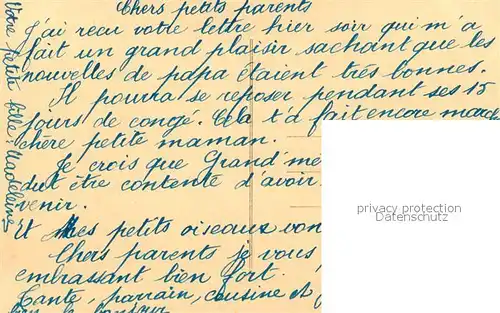 Chers petits parents
J'ai recu votre lettre hier soir qui m'a
fait un grand plaisir sachant que les
nouvelles de papa étaient très bonnes.
Il pourra se reposer pendant ses 15
jours de congé. Cela t'a fait encore
chère petite maman.
Je crois que Grand'
dut être contente d'avoir
venir.
Et mes petits oiseaux
Chers parents je vous
embrassant bien fort.
Tante, parrain, cousine et
Votre petite fille, Madeleine
privacy protection
Datenschutz